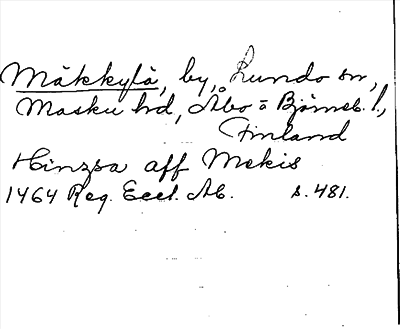 Mäkkylä, by, Lundo sn,
Masku hd, Åbo o Björneb. l.,
Finland
Hinzsa aff Mekis
1464 Reg. Eccl. Ab. s. 481.